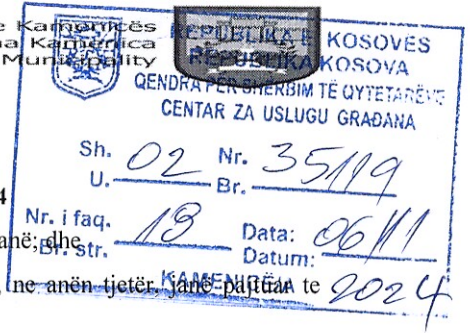 Kamenicës
Kamenica
Municipality
REPUBLIKA E KOSOVËS
REPUBLIKA KOSOVA
QENDRA PËR SHERBIM TË QYTETARËVE
CENTAR ZA USLUGU GRAĐANA
Sh. 02 Nr. 35119
U. Br.
4
Nr. i faq. 13 Data: 06/11
Br. str. Datum:
anë; dhe
KAMENICË/A 2024
, ne anën tjetër, janë pajtuar te